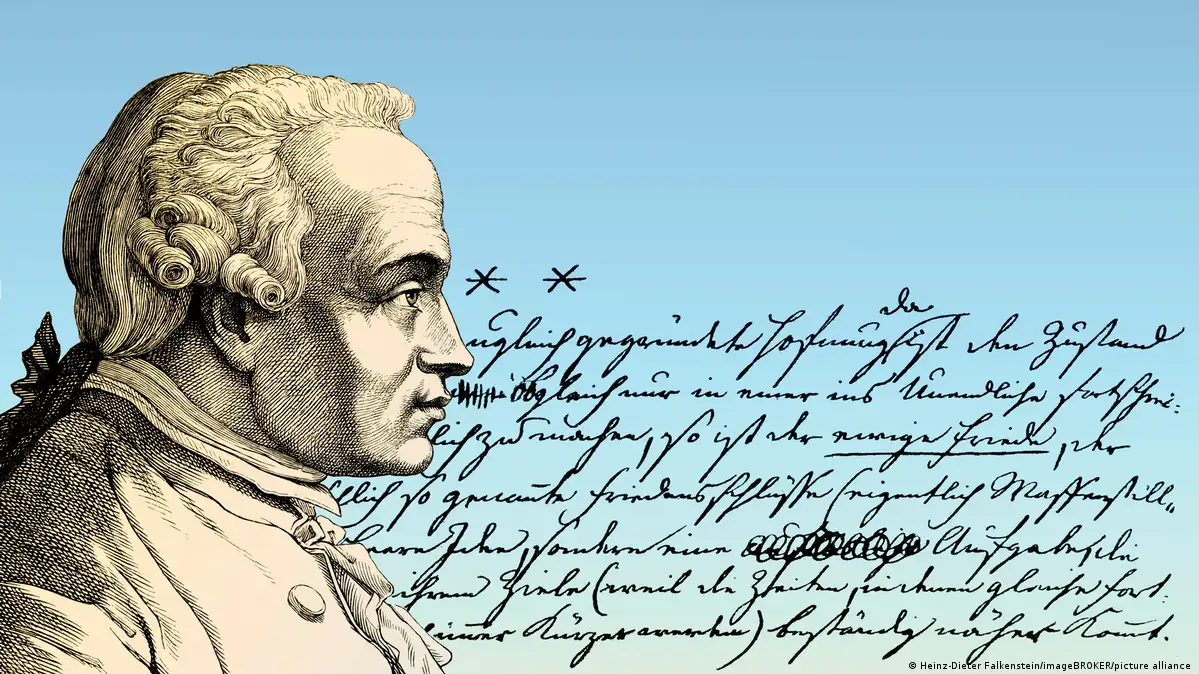 * *
da
ugleich gegründete Hofnung ist den Zustand
obgleich nur in einer ins Unendliche fortschrei-
lich zu machen, so ist der ewige Friede, der
chlich so genante Friedensschlüsse (eigentlich Waffenstill-
leere Idee, sondern eine Aufgabe, die
ihrem Ziele (weil die Zeiten, in denen gleiche Fort-
immer Kürzer werden) beständig näher Komt.
© Heinz-Dieter Falkenstein/imageBROKER/picture alliance